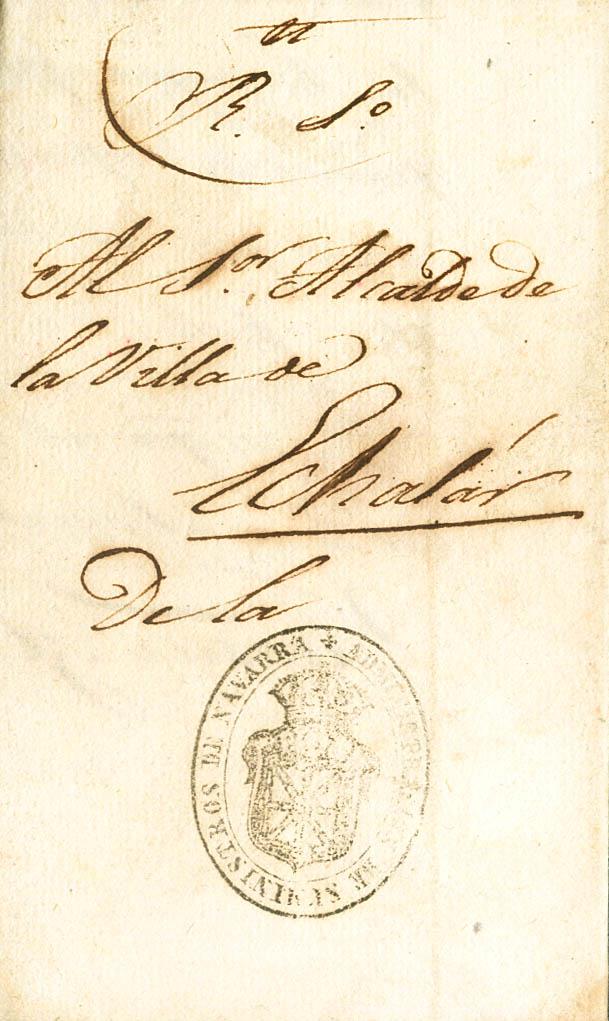 R. S.º
Al S.or Alcalde de
la Villa de
Echalár
De la
DE SUMINISTROS DE NAVARRA